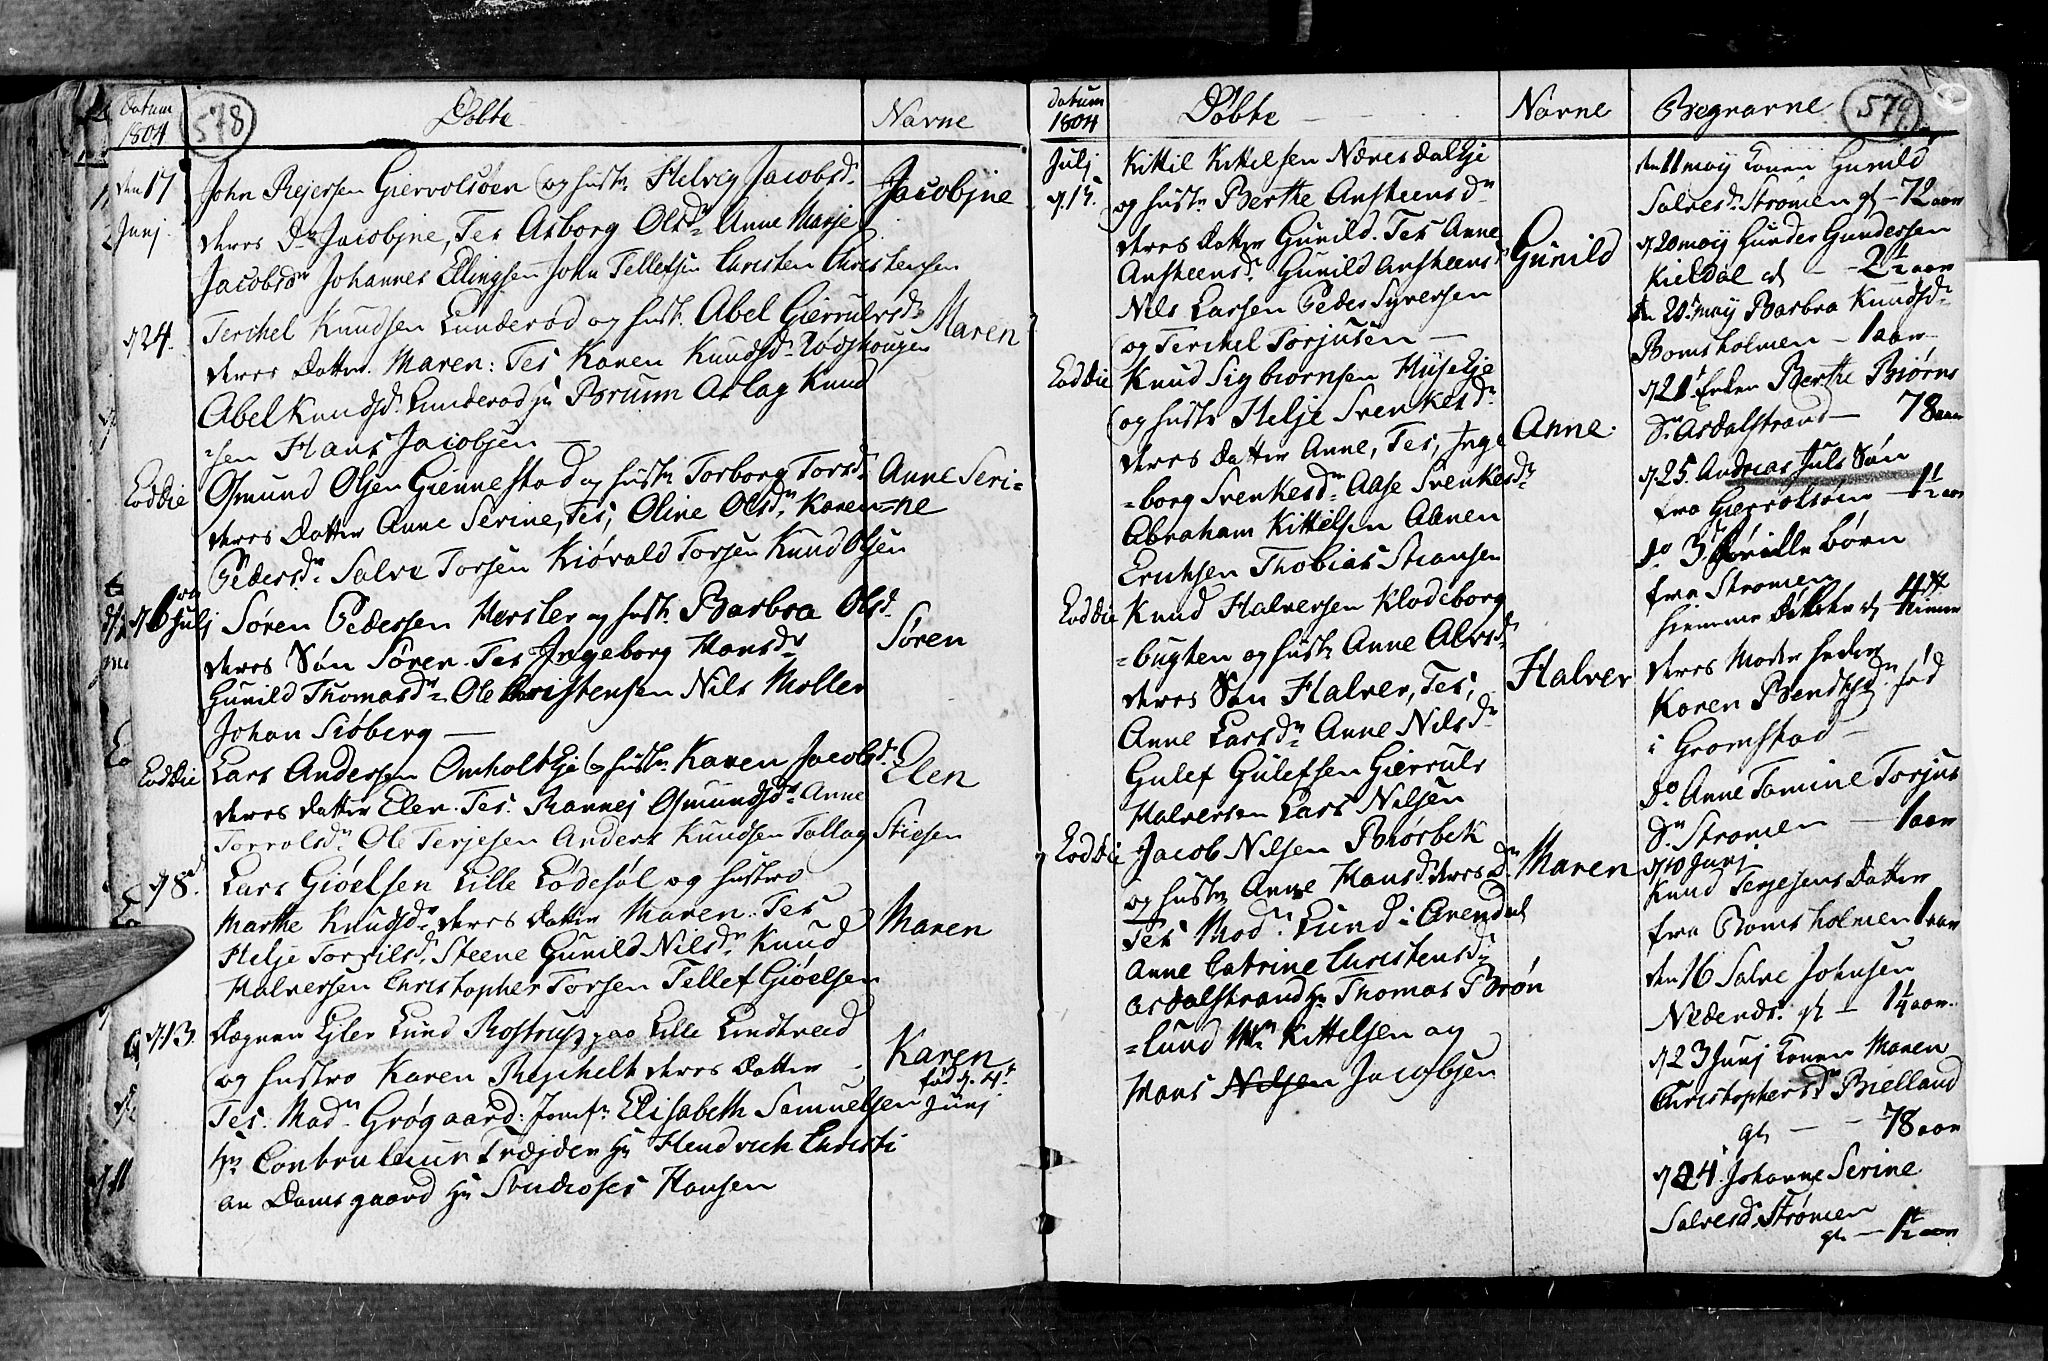 Datum
1804
578
Døbte
Navne
den 17
Junj
John Rejersen Giervolsøen og hustr Helvig Jacobsdr
Jacobjne
deres Dr Jacobjne, Tes Asborg Olsdr Anne Marje
Jacobsdr Johannes Ellingsen John Tellefsen Christen Christensen
d 24
Terchel Knudsen Lunderød og hustr Abel Giervulvsdr
Maren
deres Datter Maren: Tes Karen Knudsdr
Abel Knudsdr Lunderød Hr Bruun Aslag Knud
=sen Hans Jacobsen —
Eoddie
Osmund Olsen Giennestad og hustr Torborg Torsdr
Anne Seri=
deres Datter Anne Serine, Tes, Oline Olsdr, Karen
=ne
Pedersdr Salve Torsen Kiøvald Torsen Knud Olsen
d 1 Julj
Søren Pedersen Hersler og hustr Barbra Olsdr
deres Søn Søren. Tes Ingeborg Hansdr
Søren
Gunild Thomasdr Ole Christensen Nils Møller
Johan Siøberg —
Eoddie
Lars Andersen Omholt Eje og hustr Karen Jacobsdr
Elen
deres Datter Elen. Tes. Rannej Osmundsdr Anne
Torvolsdr Ole Terjesen Anders Knudsen Tallag Stiesen
d 8
Lars Giøelsen Lille Lødesøl og hustro
Marthe Knudsdr deres Datter Maren. Tes
Maren
Helje Torfilsdr Steene Gunild Nilsdr Knud
Halversen Christopher Torsen Tellef Giøelsen
d 13.
Degnen Ejler Lund Rostrup paa Lille Lindtveed
og hustro Karen Rejchelt deres Datter —
Karen
fød d. 4
Junj
Tes: Madm Grøgaard: Jomfr Elisabeth Samuelsen
Hr Contruleur Trejder Hr Hendrich Christi
an Damsgaard Hr Hansen
Datum
1804
Døbte
Navne
Begravne
579
Julj
d. 15.
Kittil Kittelsen Næresdal Eje
og hustr Berthe Ansteensdr
deres Datter Gunild. Tes Anne
Gunild
Ansteensdr Gunild Ansteensdr
Nils Larsen Peder Syversen
og Terchel Torjusen —
Eoddie
Knud Sigbiørnsen Huse Eje
og hustr Helje Svenkesdr
deres Datter Anne, Tes, Inge
Anne
=borg Svenkesdr Aase Svenkesdr
Abraham Kittelsen Aanen
Erichsen Thobias Stiansen
Eoddie
Knud Halversen Klodeborg
=bugten og hustr Anne Alvsdr
deres Søn Halver, Tes,
Halver
Anne Larsdr Anne Nilsdr
Gulef Gulefsen Giervuls
Halversen Lars Nilsen
Eoddie
Jacob Nilsen Biørbek
og hustr Anne Hansdr deres Dr
Maren
Tes Madm Lund i Arendal
Anne Catrine Christensdr
Asdalstrand Hr Thomas Brøn
=lund Kittelsen og
Hans Nilsen Jacobsen
den 11 maij Konen Gunild
Salvesdr Strømen gl - 72 aar
d 20 maij Gunder Gundersen
Kieldal gl — 2½ aar
d 20 maij Barbra Knudsdr
Romsholmen — 1 aar
d 21 Enken Berthe Biørns
Dr Asdalstrand — 78 aar
d 25. Andreas Juls Søn
fra Giervolsøen — 1½ aar
do 3de Børn
fra Strømen
hiemme døbte gl
deres Moder heder
Karen Bendtsdr fød
i Gromstad —
do Anne Tomine Torjus
Dr Strømen — 1 aar
d 10 Junj
Knud Terjesens Datter
fra Romsholmen 1 aar
den 16 Salve Johnsen
Nedenæs gl — 1¼ aar
d 23 Junj Konen Maren
Christophersdr Bielland
gl — 78 aar
d 24 Johanne Serine
Salvesdr Strømen
gl — 1½ aar